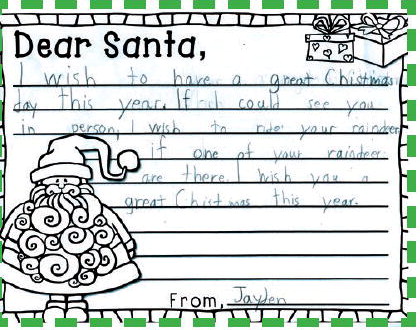 Dear Santa,
I wish to have a great Chistmas
day this year. If I could see you
in person, I wish to ride your raindeer
if one of your raindeer
are there. I wish you a
great Christmas this year.
From, Jayden